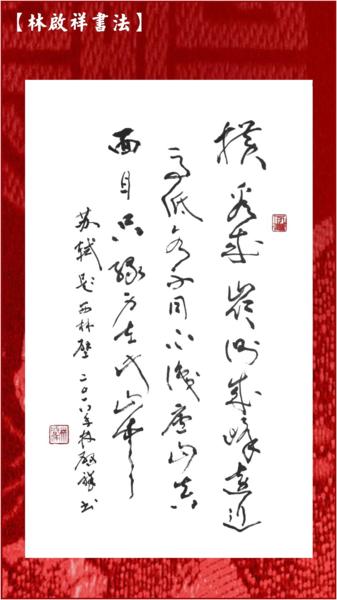 【林啟祥書法】
橫看成嶺側成峰遠近
高低各不同不識廬山真
面目只緣身在此山中
蘇軾題西林壁 二〇一八年林啟祥書